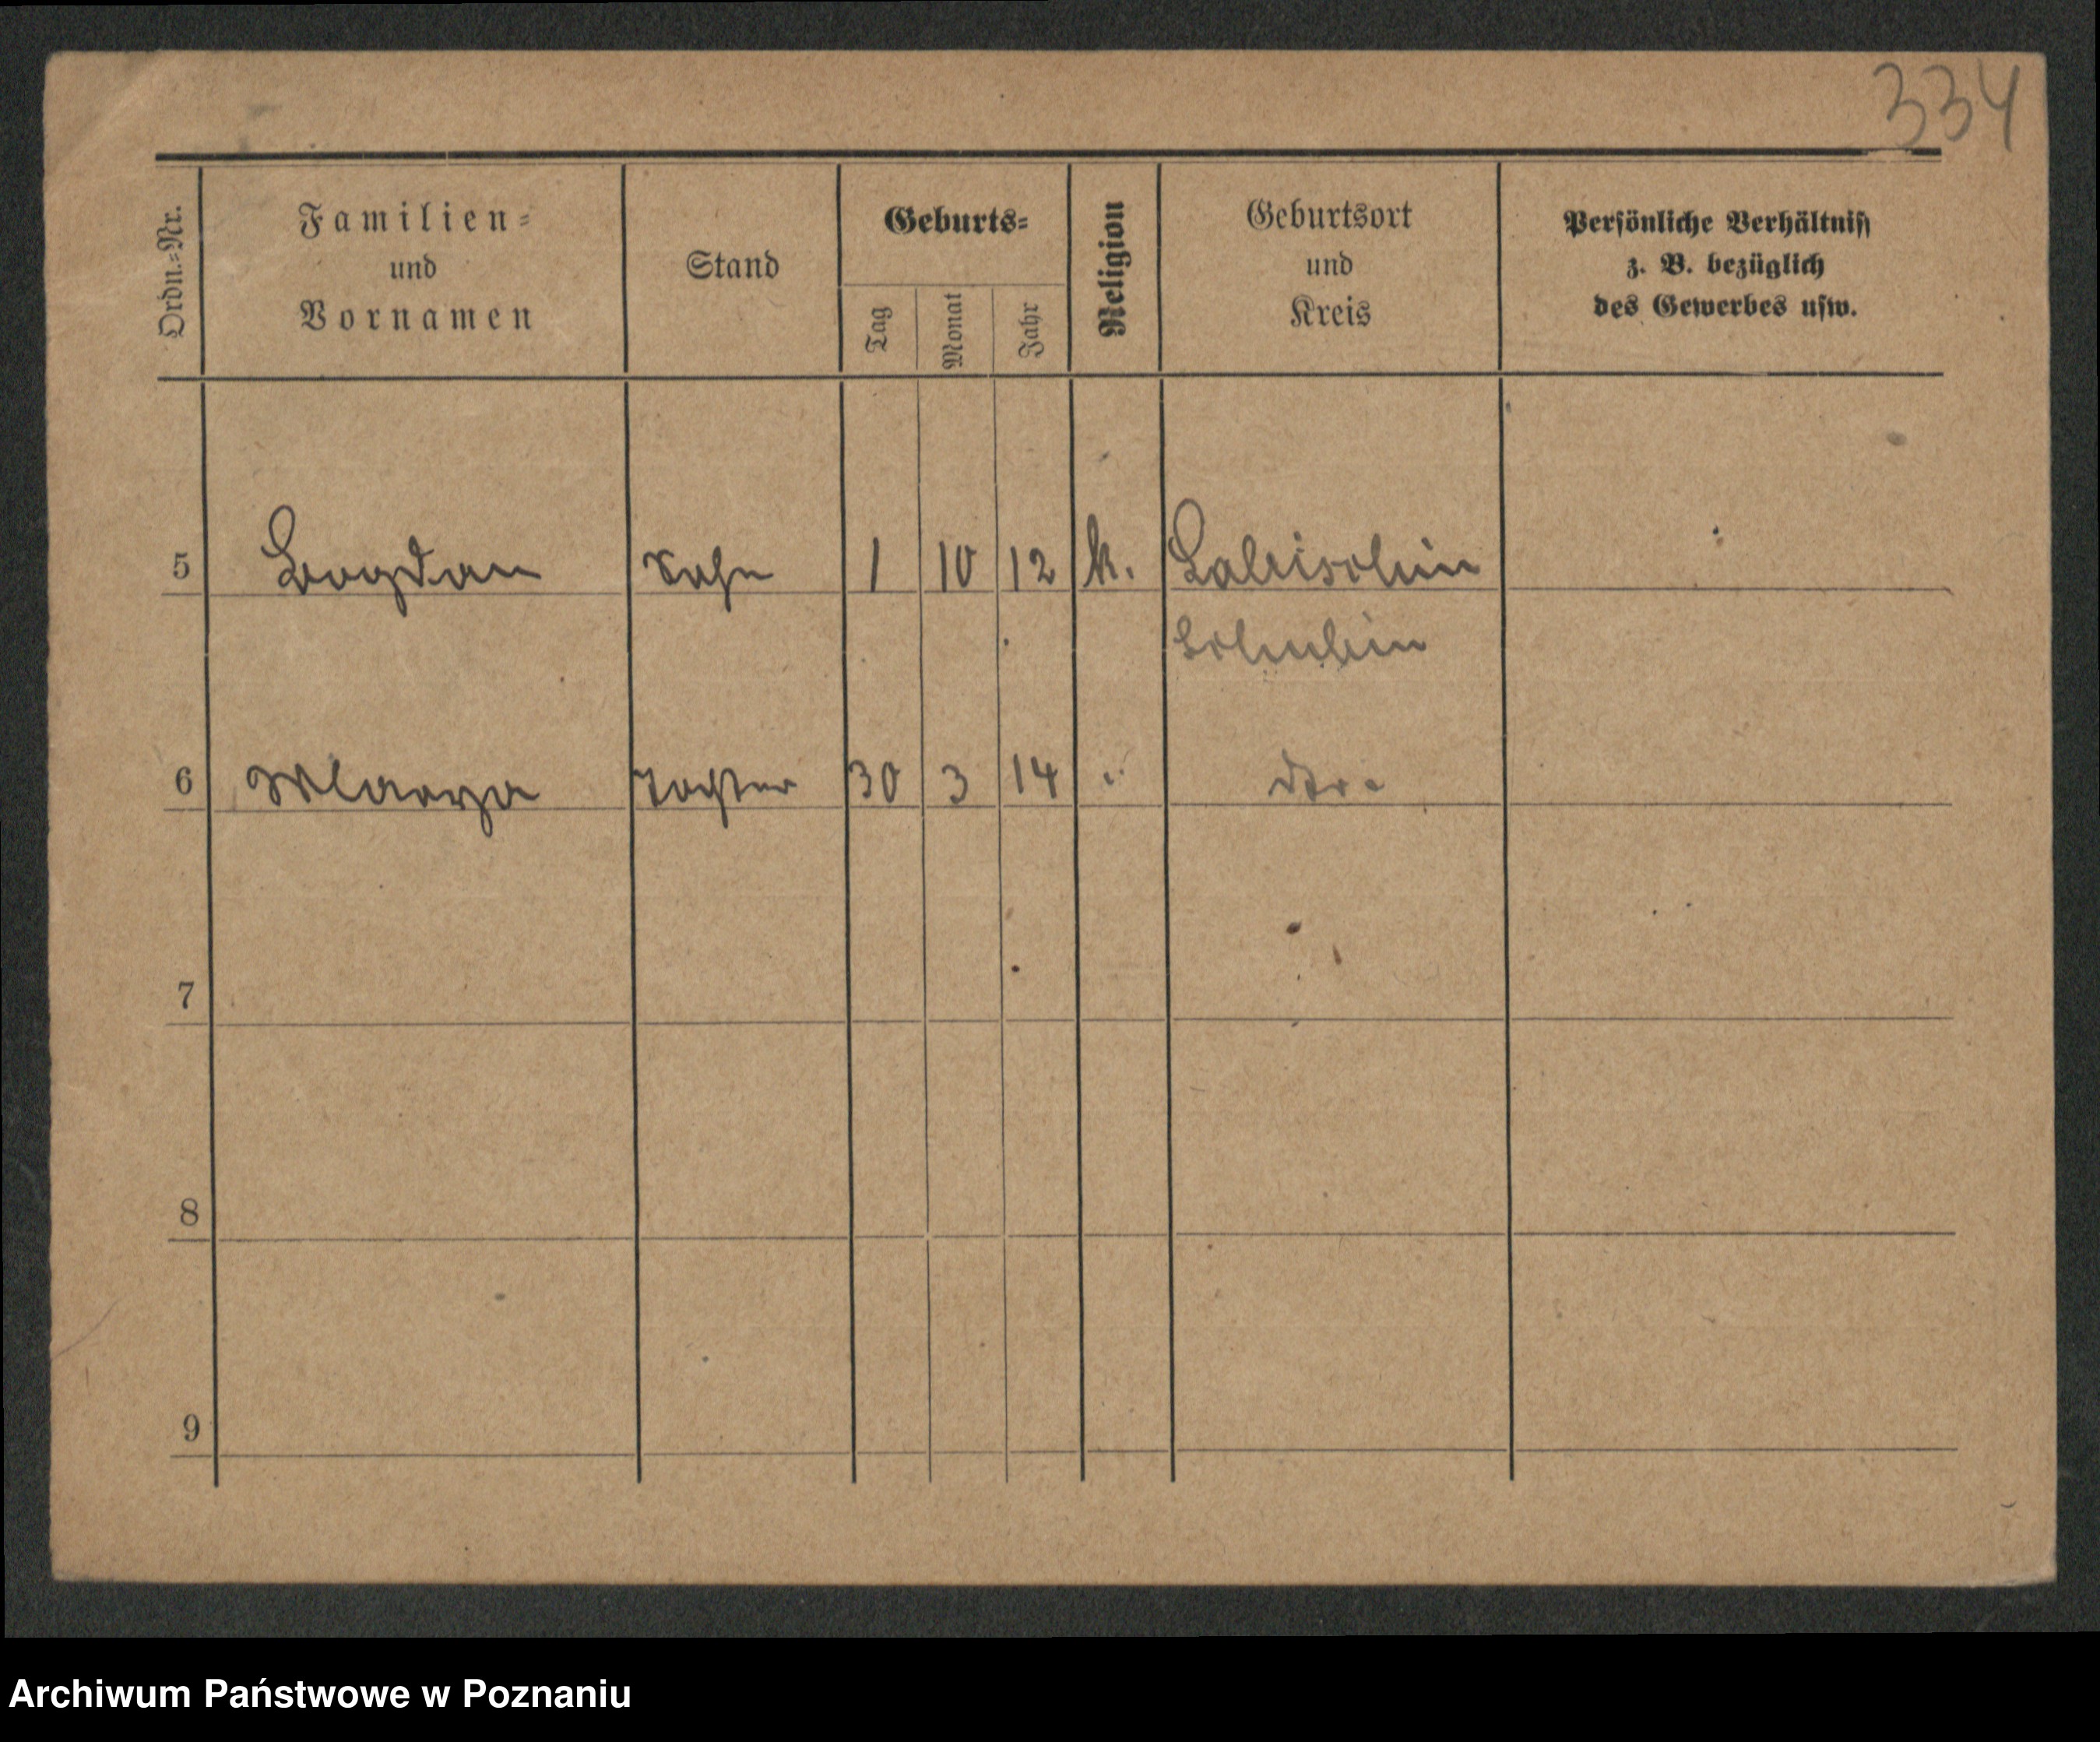 334
Ordn.=Nr.
Familien=
und
Vornamen
Stand
Geburts=
Tag
Monat
Jahr
Religion
Geburtsort
und
Kreis
Persönliche Verhältniss
z. B. bezüglich
des Gewerbes usw.
5 Bogdan Sohn 1 10 12 k. Labischin
Schubin
6 Tochter 30 3 14 " dto.
7
8
9
Archiwum Państwowe w Poznaniu